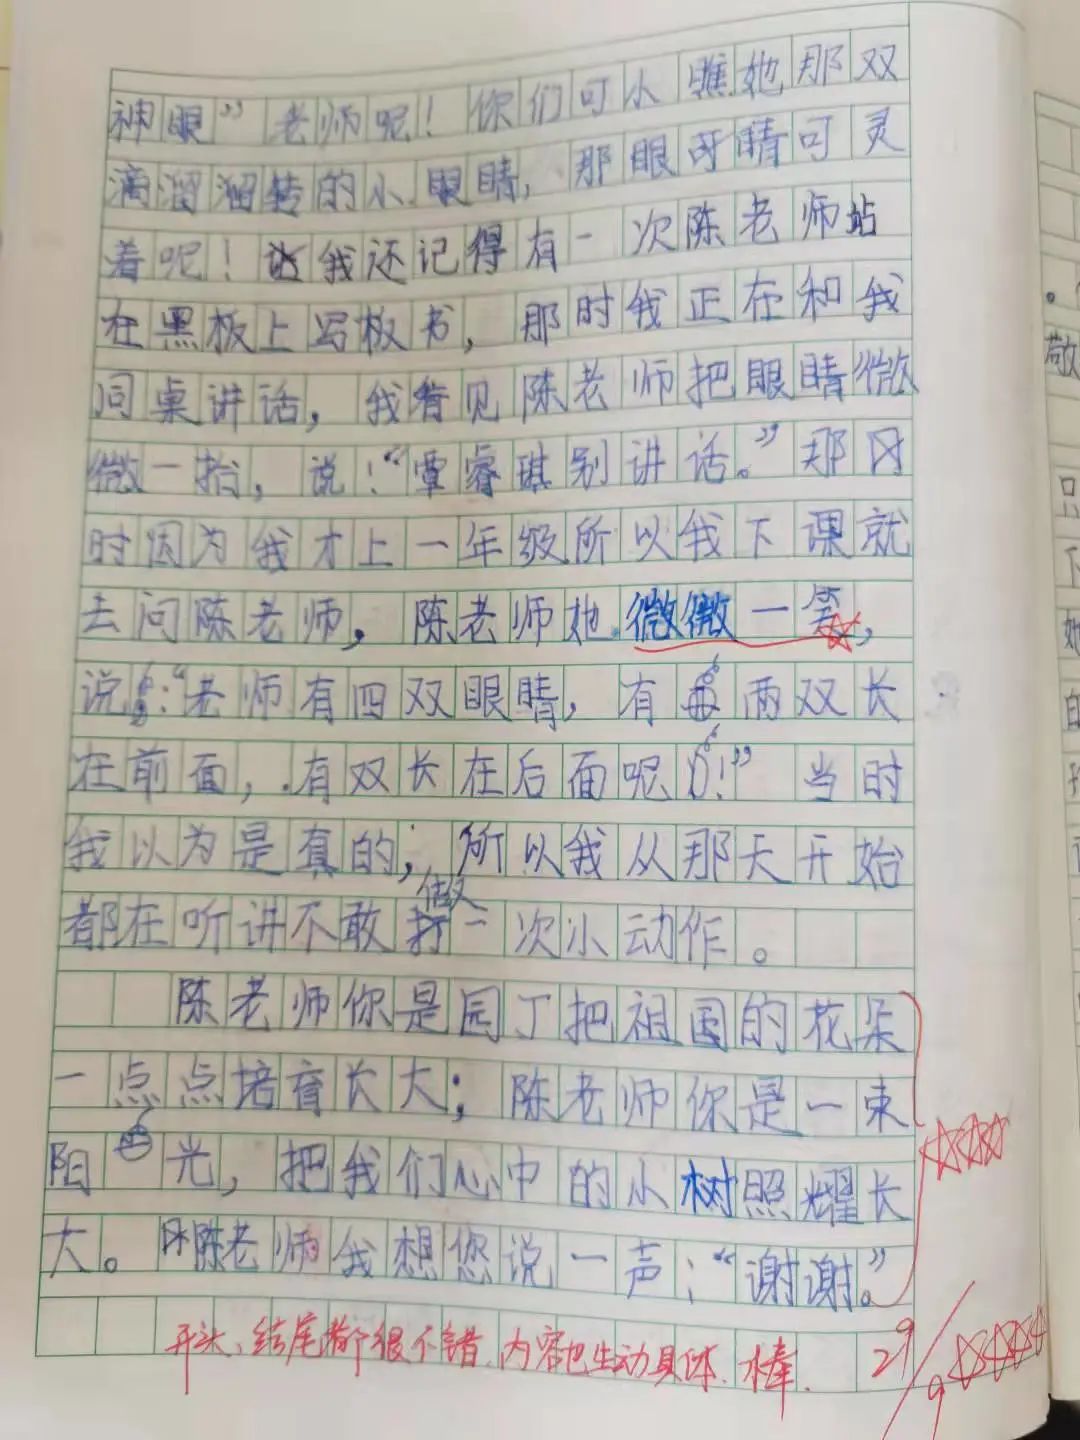 神眼”老师呢！你们可小瞧她那双
滴溜溜转的小眼睛，那眼睛可灵
着呢！我还记得有一次陈老师站
在黑板上写板书，那时我正在和我
同桌讲话，我看见陈老师把眼睛微
微一抬，说：“覃睿琪别讲话。”那
时因为我才上一年级所以我下课就
去问陈老师，陈老师她微微一笑，
说：“老师有四双眼睛，有两双长
在前面，有双长在后面呢！”当时
我以为是真的，所以我从那天开始
都在听讲不敢做一次小动作。
陈老师你是园丁把祖国的花朵
一点点培育长大；陈老师你是一束
阳光，把我们心中的小树照耀长
大。陈老师我想您说一声：“谢谢。”
开头、结尾都很不错，内容也生动具体，棒．
29/9